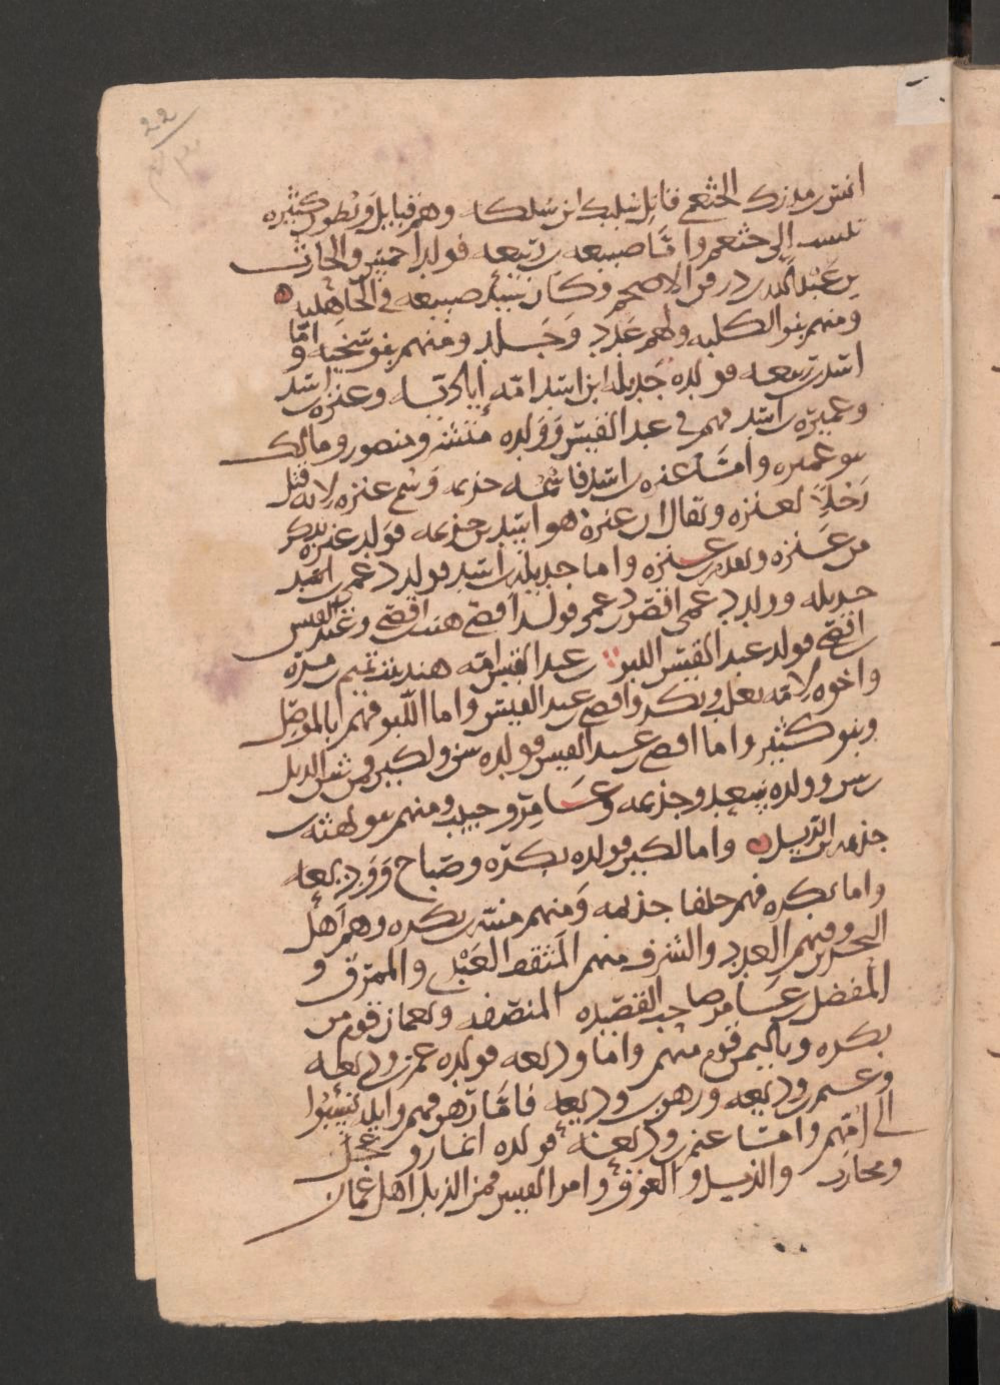 22
انس بن مدرك الخثعمي قاتل سليك ابن سلكا وهم قبايل وبطون كثيره
تنسب الى خثعم واما ضبيعه بن ربيعه فولد احمس والحارث
من عبد الله بن دوفن الاضجم وكان سيد ضبيعه في الجاهليه
ومنهم بنو الكلبه ولهم عدد وجلد ومنهم بنو شحنه واما
اسد بن ربيعه فولده جديله ابن اسد امه إياديه وعنزه بن اسد
وعميره بن اسد فهم في عبد القيس وولده مبشر ومنصور ومالك
بنو عميره وامّا عنزه بن اسد فاسمه خزيمه وسمي عنزه لانه قتل
رَجُلاً بعنزه ويقال ان عنزه هو اسد بن خزيمه فولد عنزه يذكر
بن عَنزه ويقدم بن عنزه واما جديله بن اسد فولد دعمي بن اسد
جديله وولد دعمي افصى بن دعمي فولد افصى هنب بن افصى وعبد القيس
بن افصى فولد عبد القيس اللبو بن عبد القيس امه هند بنت تميم بن مره
واخوه لامّه تغلب وبكر وافصى بن عبد القيس واما اللبو فهم بالموصل
وبنو كثير واما افصى بن عبد القيس فولده شن ولكيز فمن شن الديل
بن شن وولده سعد وجذيمه وعامر وحبيب ومنهم بنو بهثه بن
جذيمه بن الدّيل واما لكيز فولده نكره وصباح ووديعه
واما نكره فهم حلفا جذيمه ومنهم منبّه بن نكره وهم اهل
البحرين وفيهم العدد والشرف منهم المثقب العَبْدي والممزق و
المفضل بن عامر صاحب القصيده المنصفه وبعمان قوم من
نكره وباليمن قوم منهم واما وديعه فولده عمرو بن وديعه
وغنم بن وديعه ودهن بن وديعه فامّا دهن فهم وايله نسبوا
الى امّهم وامّا عمرو بن وديعه فولده انمار وعجل
ومحارب والديل والعوق وامرا القيس فمن الديل اهل عمان